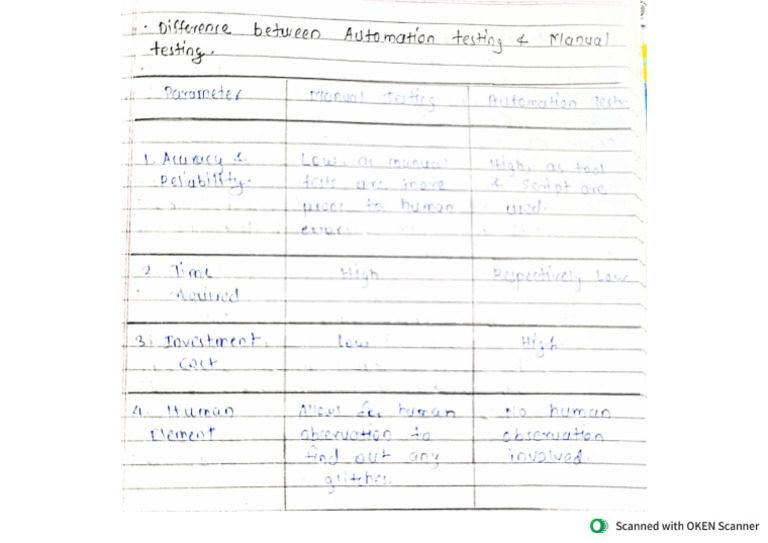 · Difference between Automation testing & Manual
testing.
Parameter Manual Testing Automation Test-
1. Accuracy & Low, as manual High, as tool
Reliability. tests are more & script are
prone to human used.
error.
2 Time High Respectively Low
required
3. Investment Low High
Cost
4. Human Allows for human No human
Element observation to observation
find out any involved.
glitches.
Scanned with OKEN Scanner